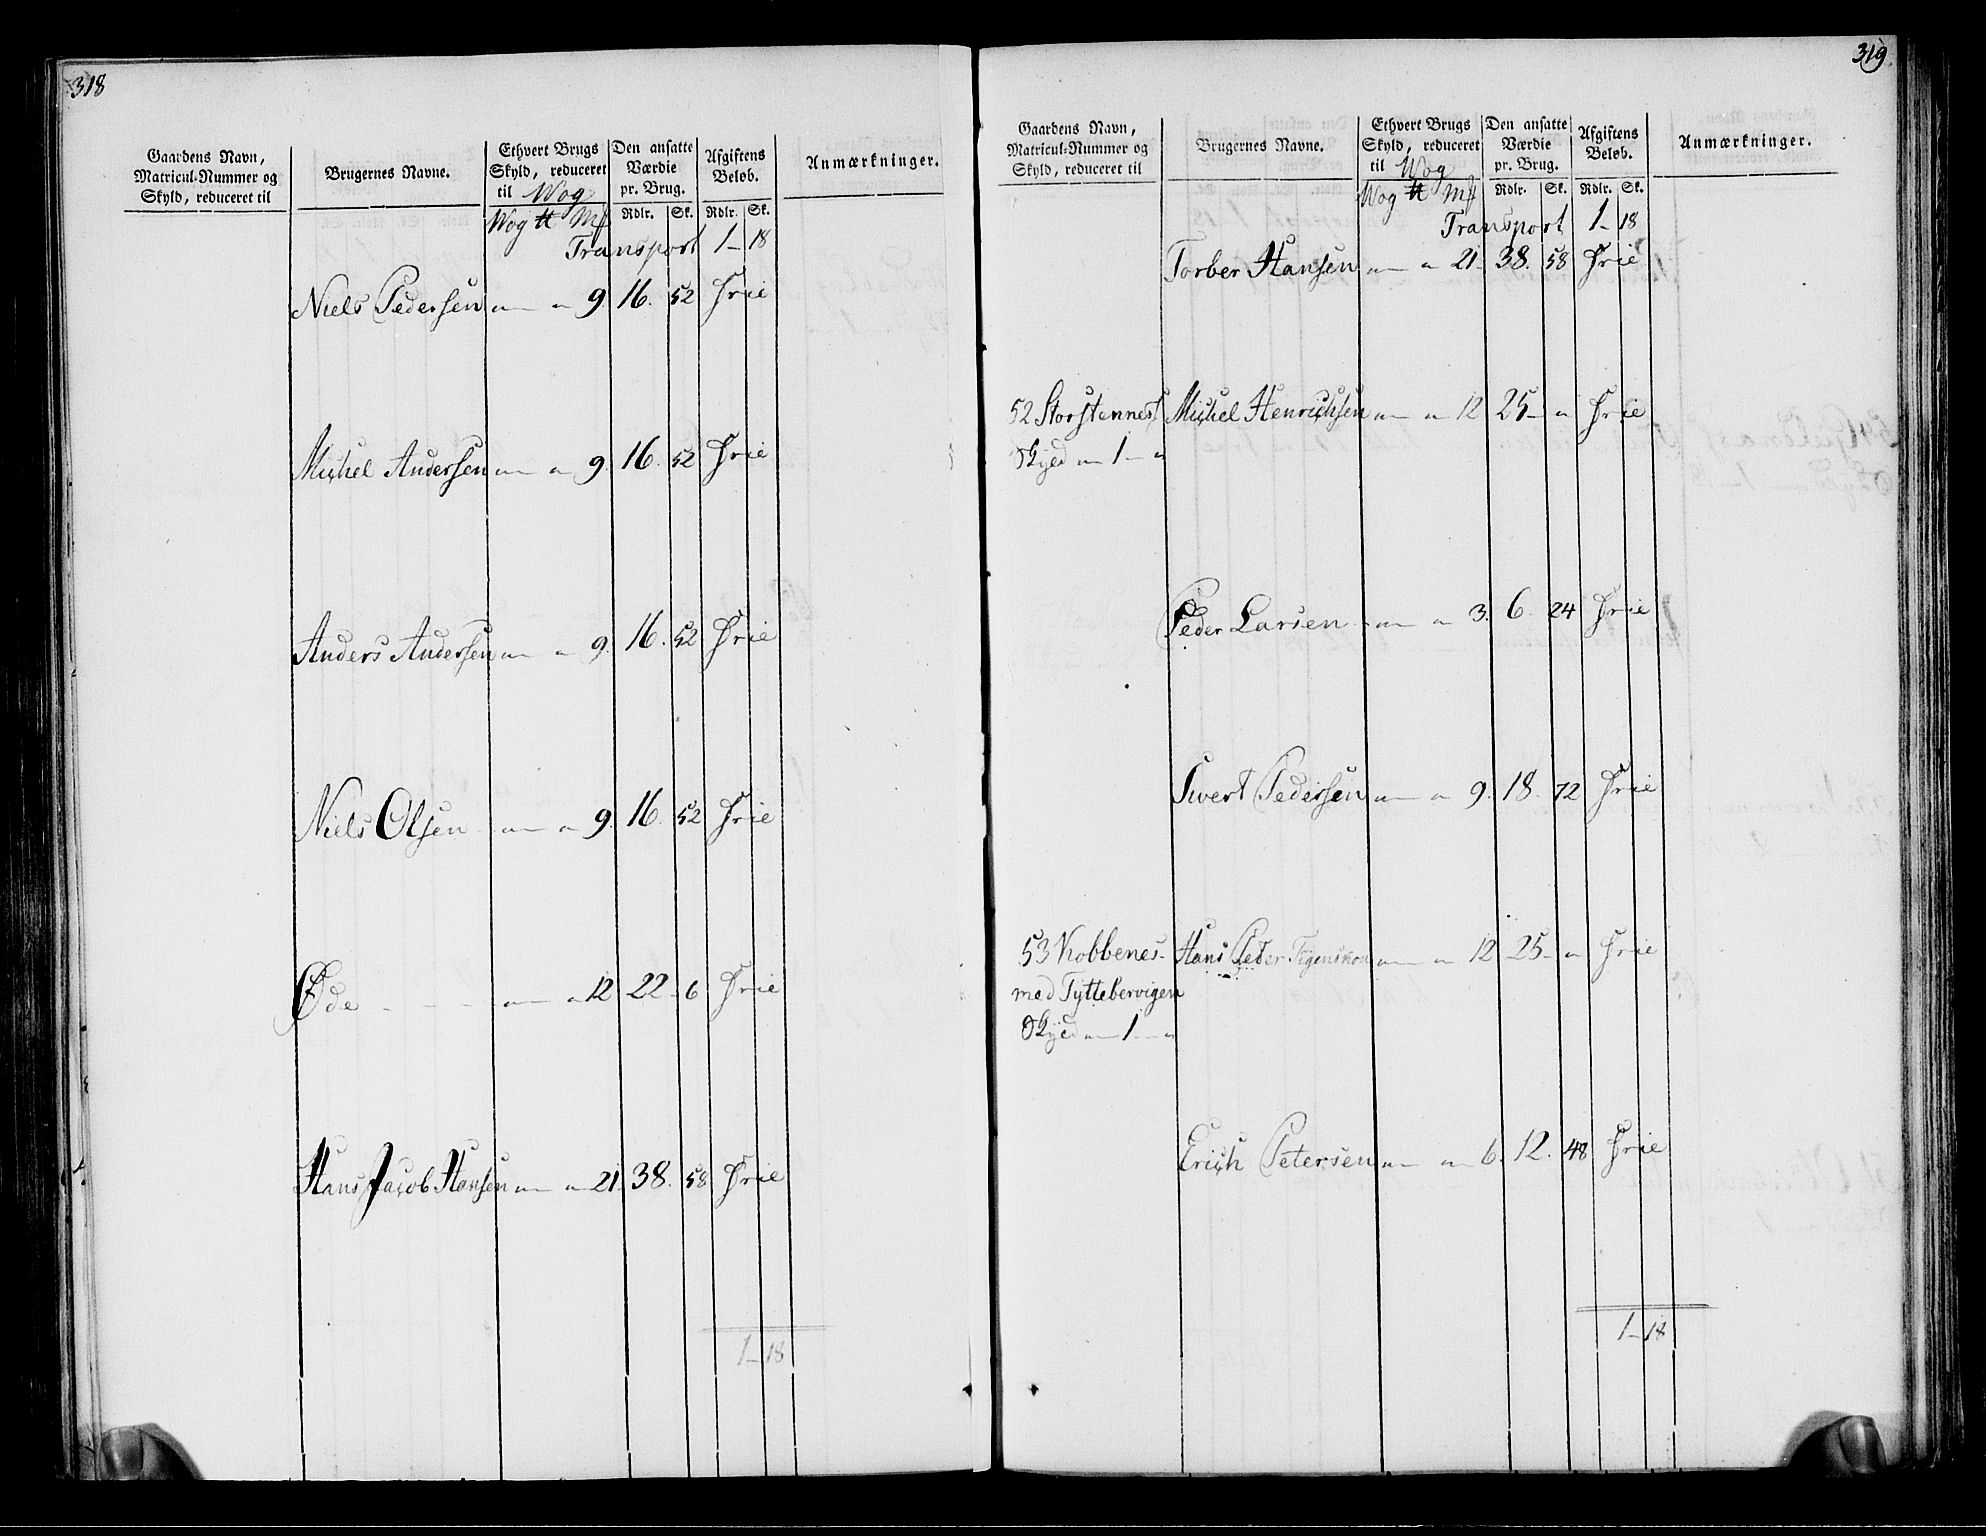 318
Gaardens Navn, Matricul-Nummer og Skyld, reduceret til
Brugernes Navne.
Ethvert Brugs Skyld, reduceret til Wog
Den ansatte Værdie pr. Brug.
Afgiftens Beløb.
Anmærkninger.
Wog ℔ Mk Rdlr. Sk. Rdlr. Sk.
Transport 1 - 18
Niels Pedersen " - " 9. 16. 52 Frie
Michel Andersen " - " 9. 16. 52 Frie
Anders Andersen " - " 9. 16. 52 Frie
Niels Olsen " - " 9. 16. 52 Frie
Øde " - " 12 22 - 6 Frie
Hans Jacob Hansen " - " 21. 38. 58 Frie
1 - 18
319.
Gaardens Navn, Matricul-Nummer og Skyld, reduceret til
Brugernes Navne.
Ethvert Brugs Skyld, reduceret til Wog
Den ansatte Værdie pr. Brug.
Afgiftens Beløb.
Anmærkninger.
Wog ℔ Mk Rdlr. Sk. Rdlr. Sk.
Transport 1 - 18
Torber Hansen " - " 21. 38. 58 Frie
52 Storstennest Michel Henrichsen " - " 12 25 - " Frie
Skyld " - 1 - "
Peder Larsen " - " 3. 6. 24 Frie
Siwert Pedersen " - " 9. 18. 72 Frie
53 Kobbenes Hans Peder " - " 12 25 - " Frie
med Tyttebervigen
Skyld " - 1 - "
Erich Petersen " - " 6. 12. 48 Frie
1 - 18